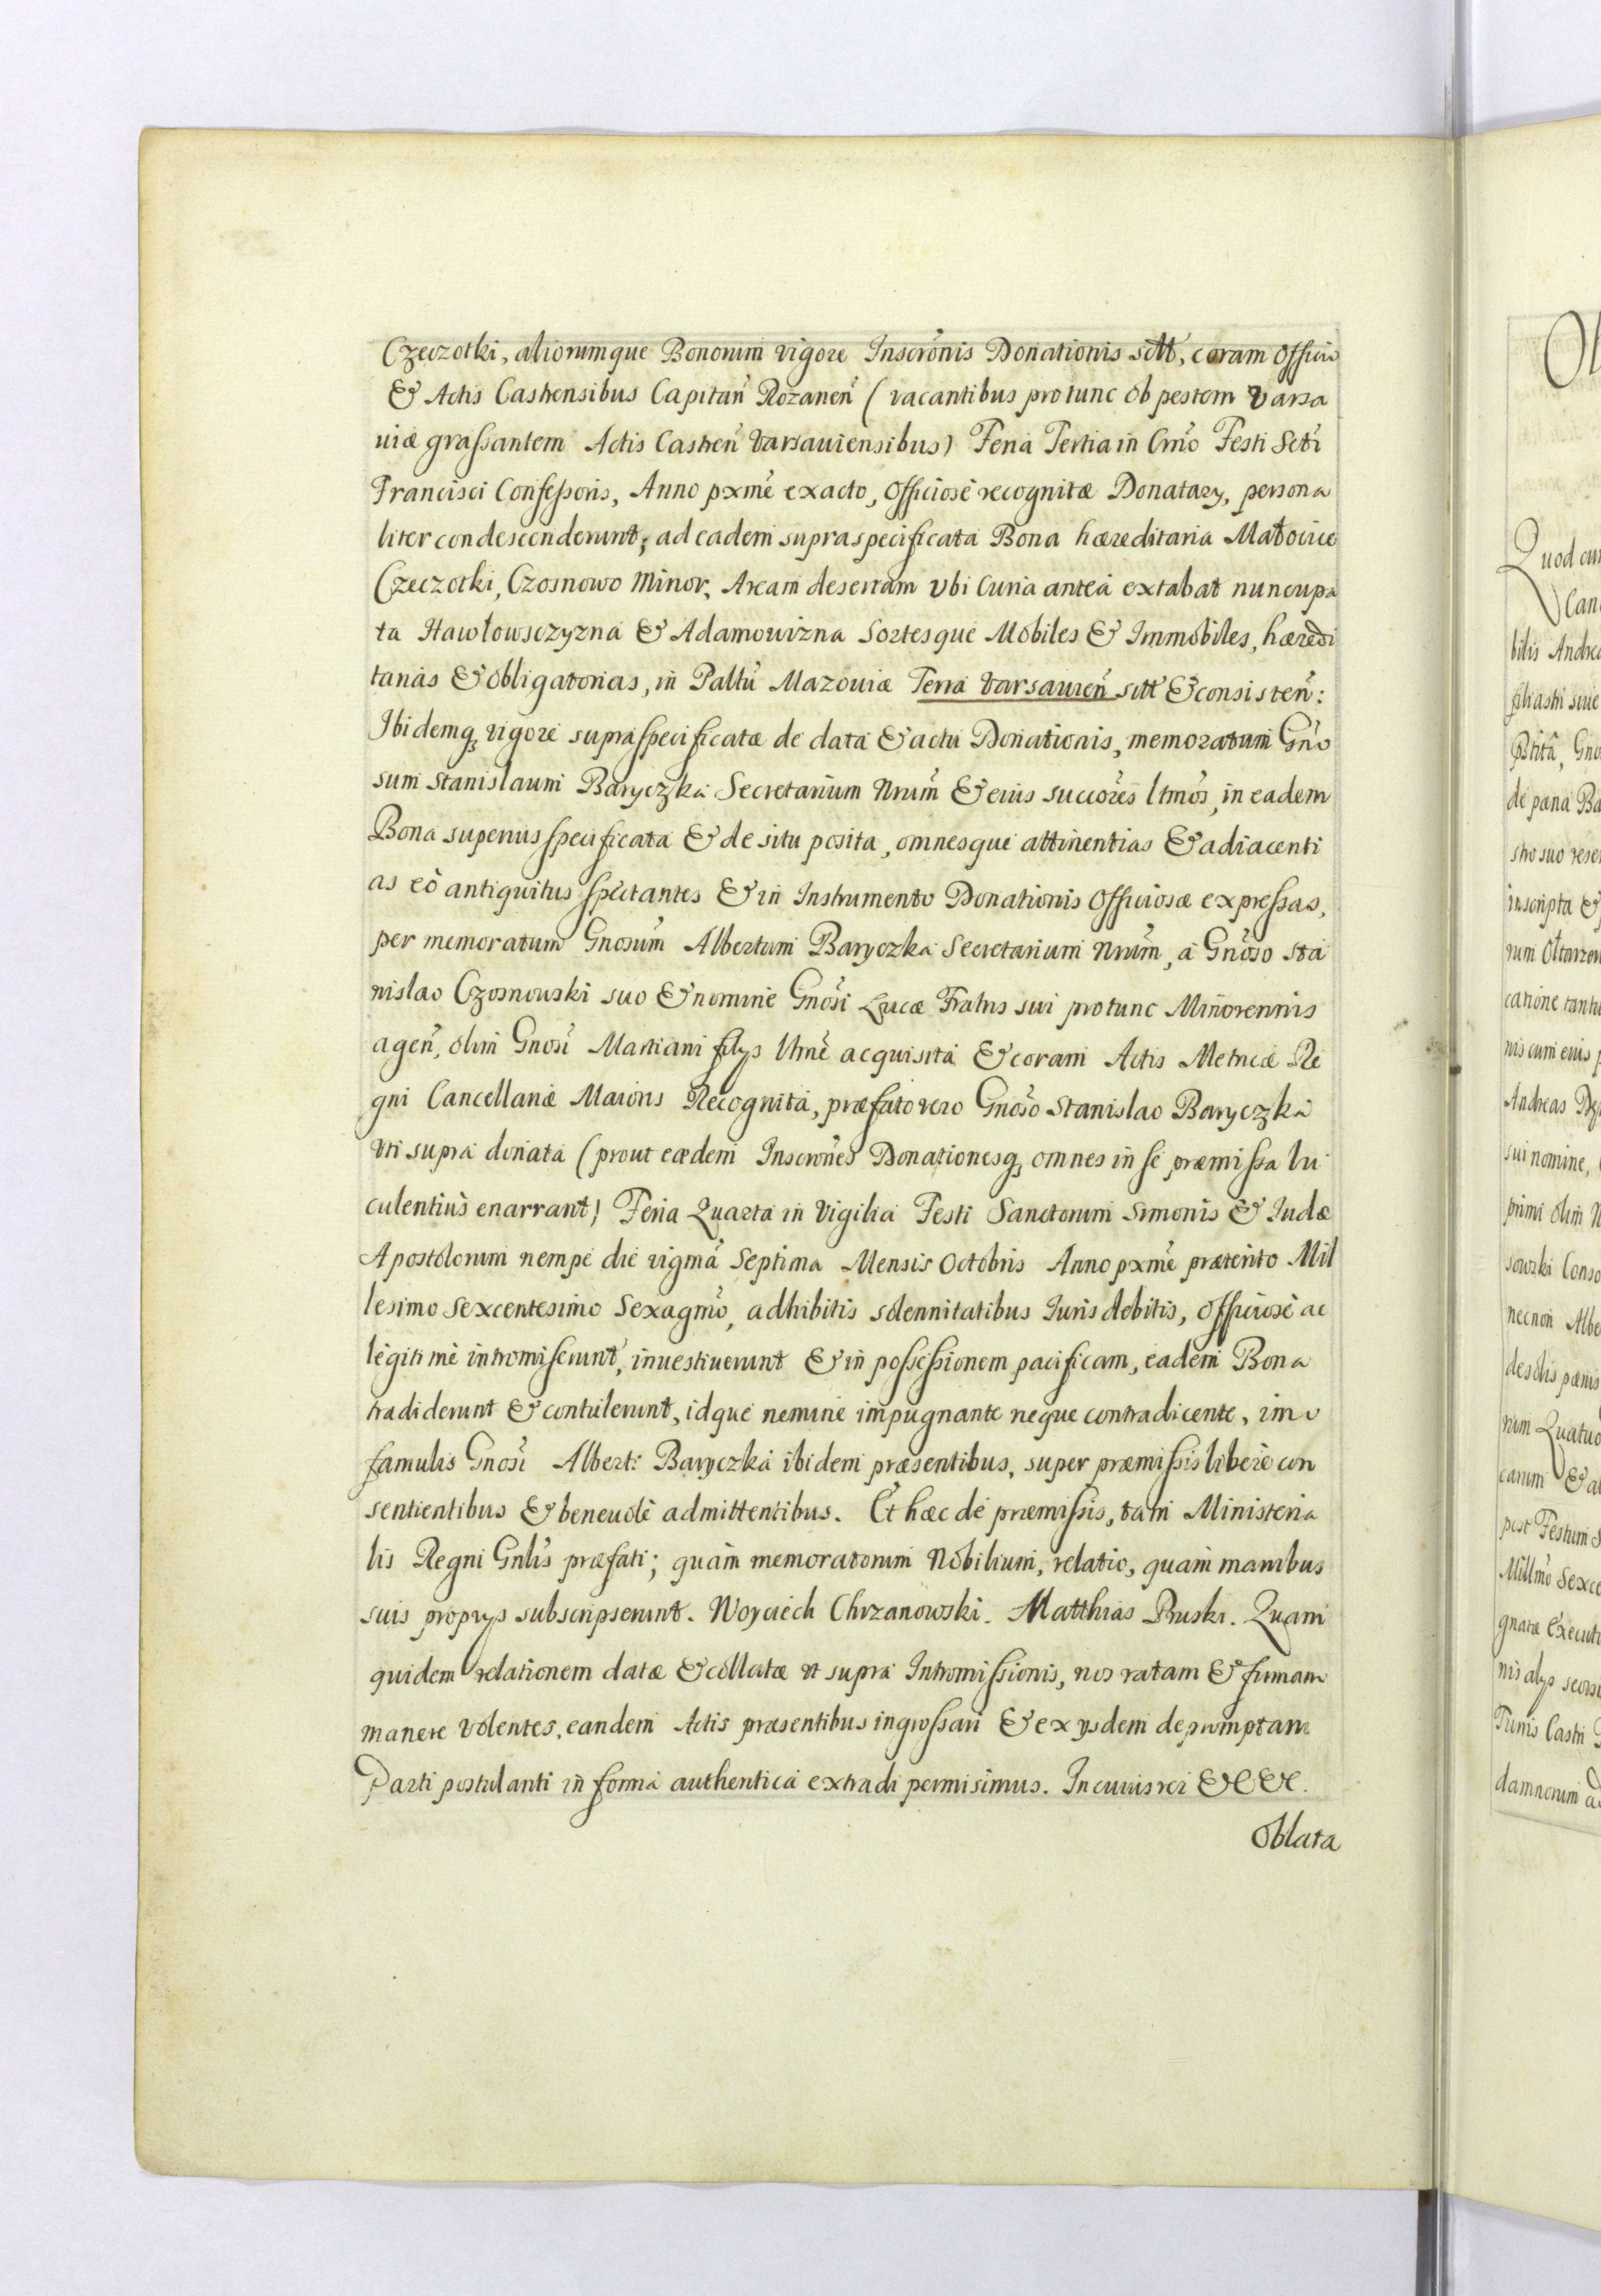 Czeczotki, aliorumque Bonorum vigore Inscrõnis Donationis sctt, coram Officio
& Actis Castrensibus Capitañ Rozaneñ (vacantibus protunc ob pestem Varsa
uiæ graſsantem Actis Castreñ Varsauiensibus) Feria Tertia in Crño Festi Scti
Francisci Confeſsoris, Anno pxmẽ exacto, Officiosè recognitæ Donatary, persona
liter condescenderunt; ad eadem supraspecificata Bona hæreditaria Małocice
Czeczotki, Czosnowo Minor, Aream desertam Vbi Curia anteà extabat nuncupa
ta Hawłowsczyzna & Adamowizna Sortesque Mobiles & Immobiles, hæredi
tarias & obligatorias, in Paltũ Mazouiæ Terra Varsauieñ sitt & consisteñ:
Ibidemq vigore supraſpecificatæ de data & actu Donationis, memoratum Gño
sum Stanislaum Baryczka Secretarium Nrum̃ & eius succorẽs ltmõs, in eadem
Bona superius ſpecificata & de situ posita, omnesque attinentias & adiacenti
as eò antiquitus ſpectantes & in Instrumento Donationis Officiosæ expreſsas,
per memoratum Gnosum̃ Albertum Baryczka Secretarium Nrum̃, à Gnoso Sta
nislao Czosnowski suo & nomine Gnosi Lucæ Fratris sui protunc Minorennis
ageñ, olim Gnosi Martiani filys ltmẽ acquisita & coram Actis Metricæ Re
gni Cancellariæ Maioris Recognita, præfato vero Gnoso Stanislao Baryczka
vti supra donata (prout eædem Inscrones Donationesq omnes in se præmiſsa lu
culentius enarrant) Feria Quarta in Vigilia Festi Sanctorum Simonis & Iudæ
Apostolorum nempe die vigmã Septima Mensis Octobris Anno pxmẽ præterito Mil
lesimo Sexcentesimo Sexagmõ, adhibitis solennitatibus Iuris debitis, Officiosè ac
legitimè intromiserunt, inuestiuerunt & in poſseſsionem pacificam, eadem Bona
tradiderunt & contulerunt, idque nemine impugnante neque contradicente, imo
famulis Gnosi Alberti Baryczka ibidem præsentibus, super præmiſsis liberè con
sentientibus & beneuolè admittentibus. Et hæc de præmiſsis, tam Ministeria
lis Regni Gnlis præfati; quàm memoratorum Nobilium, relatio, quam manibus
suis proprys subscripserunt. Woyciech Chrzanowski. Matthias Pruski. Quam
quidem relationem datæ & collatæ vt supra Intromiſsionis, nos ratam & firmam
manere volentes, eandem Actis præsentibus ingroſsari & ex ysdem depromptam
Parti postulanti in forma authentica extradi permisimus. In cuius rei &c &c.
Oblata
Quod cum
bilis Andrea
filiastri siue
de pæna Ba
inscripta &
catione
nis cum eius
Andreas
sui nomine,
primi olim
necnon Albe
rum Quatuo
carum & al
post Festum S
Millmõ Sexce
gnatæ Executi
nis alys
damnorum